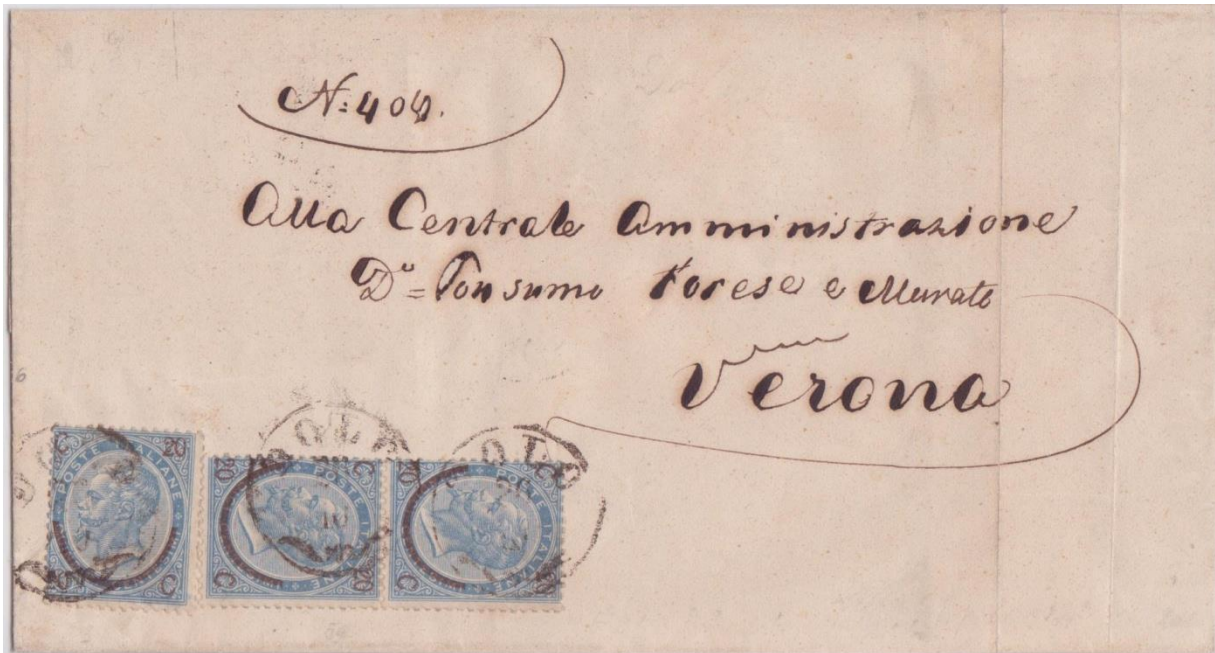 N: 404.
Alla Centrale Amministrazione
D° = Consumo Forese e Murato
Verona
20 C POSTE ITALIANE C 20
20 C POSTE ITALIANE C 20
20 C POSTE ITALIANE C 20